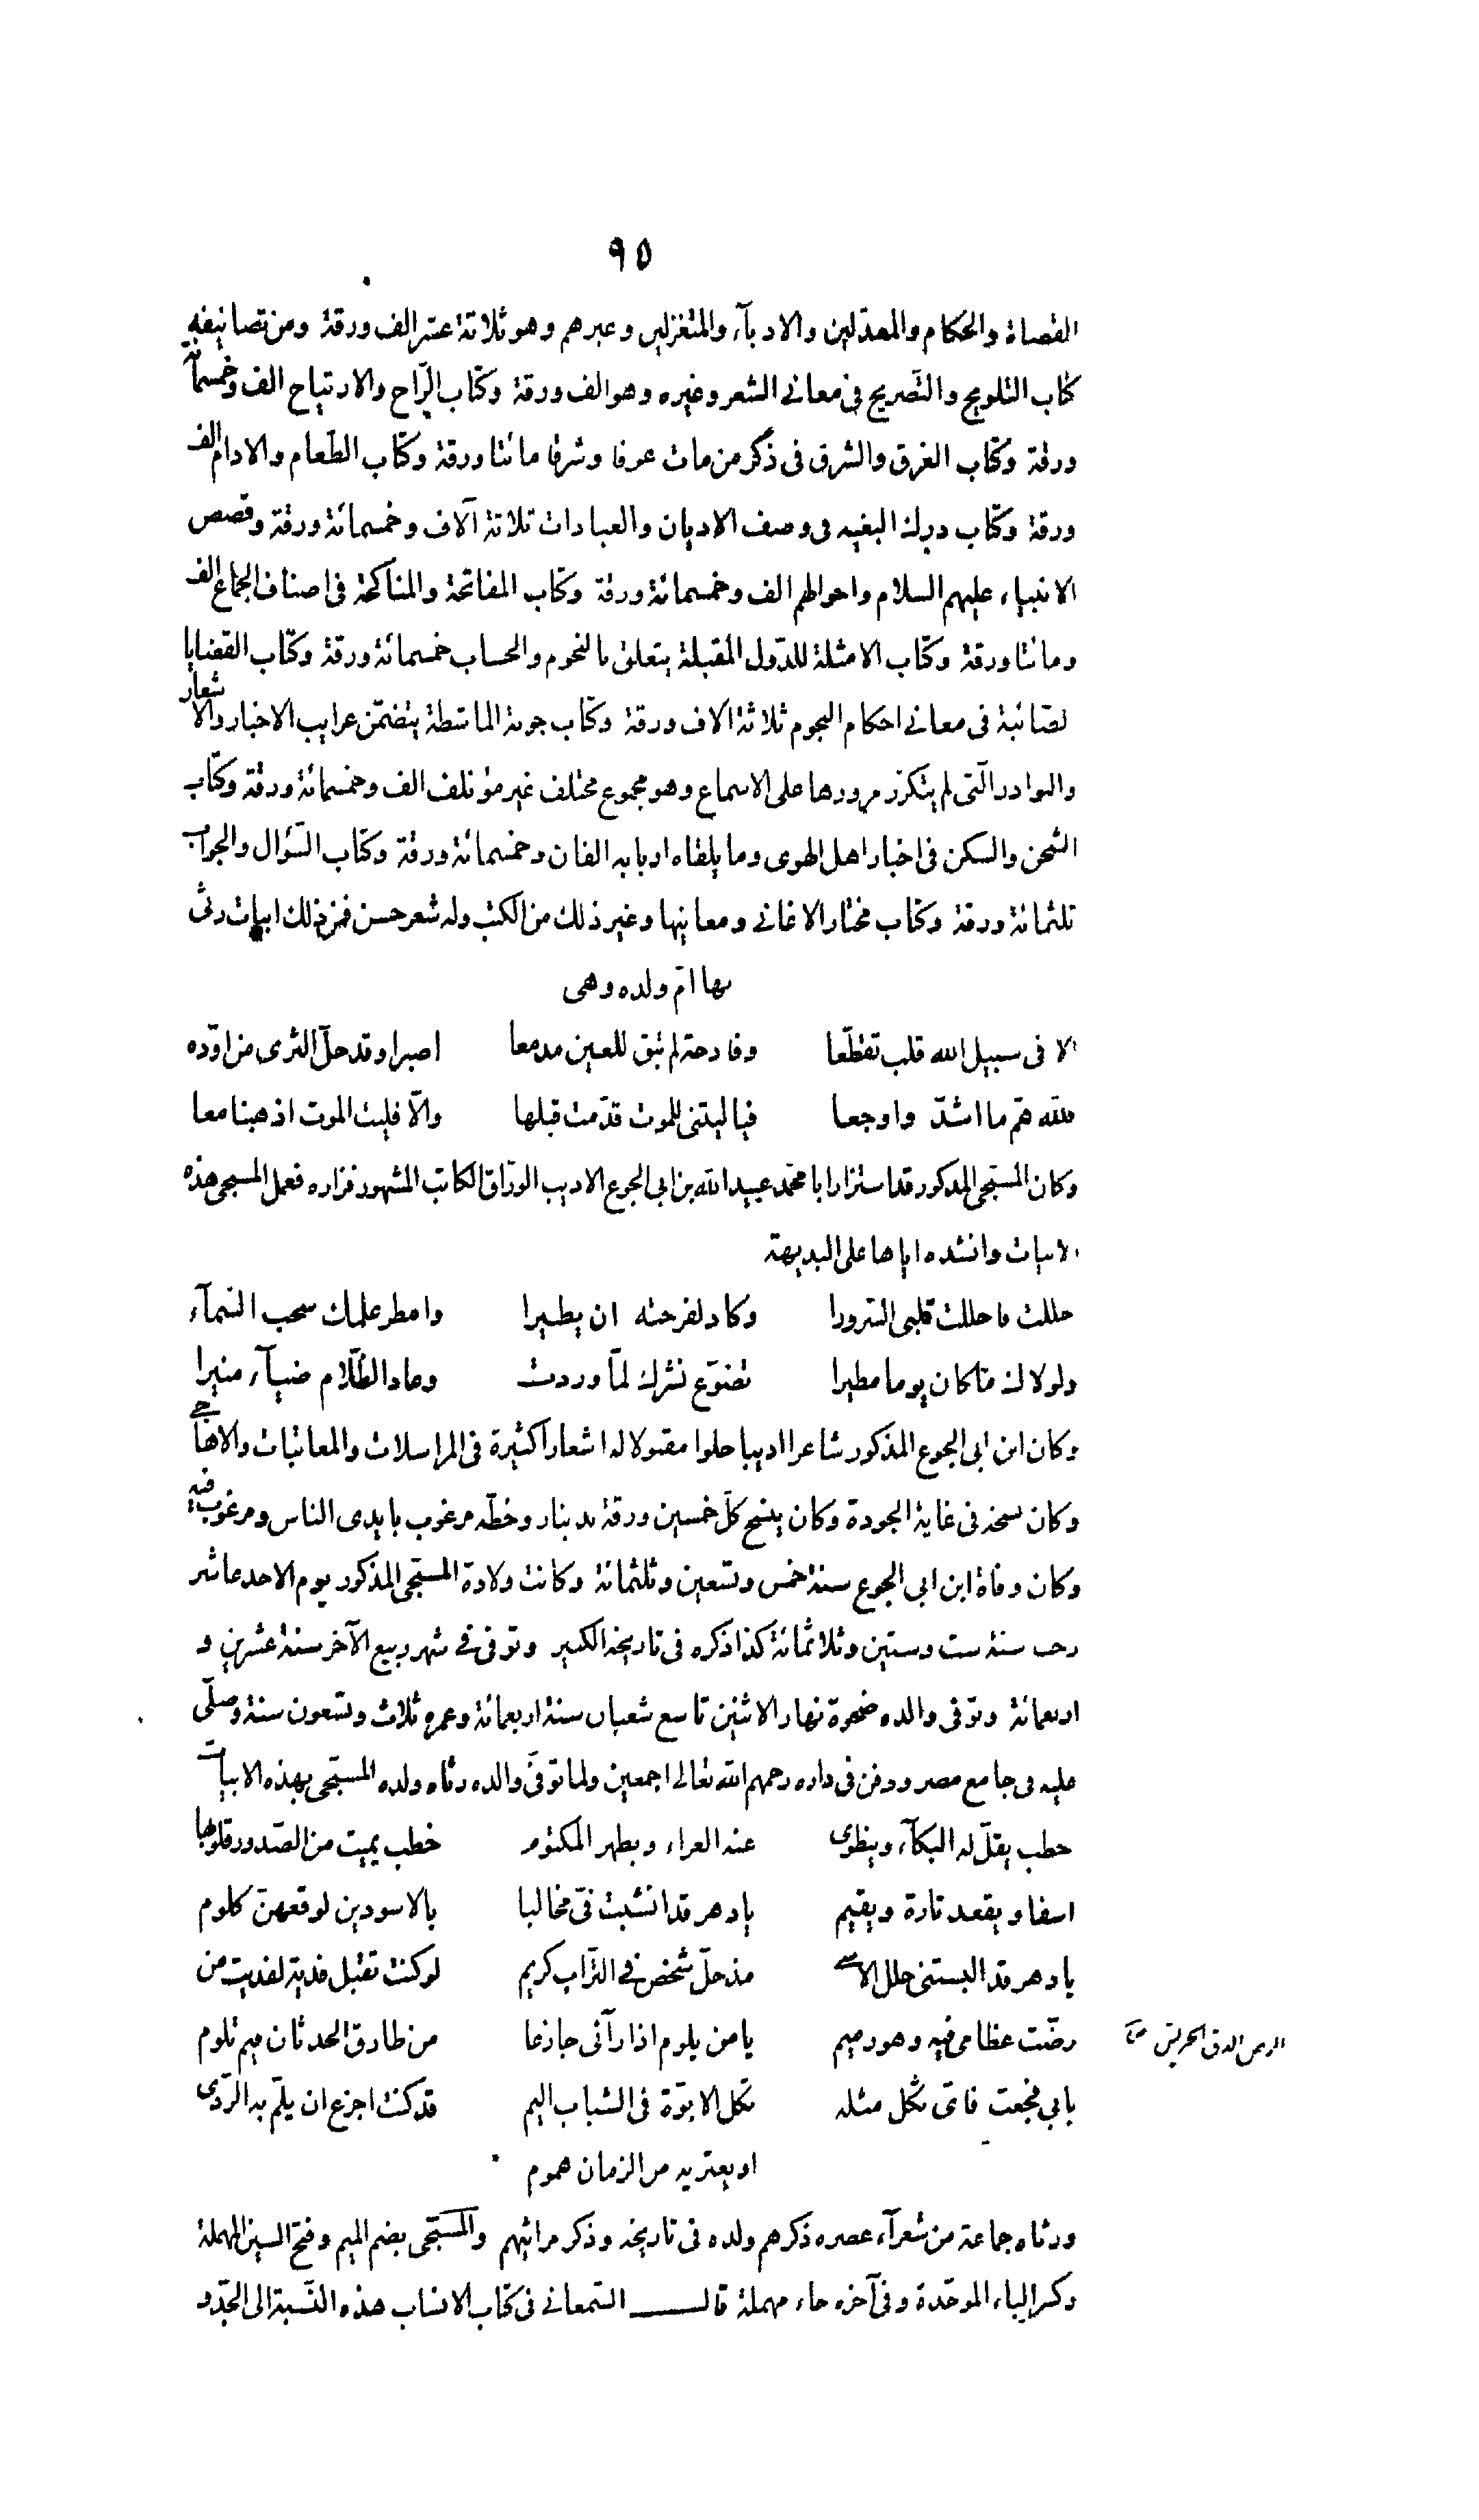 ٩٥
القضاة والحكام والمعدّلين والادبآء والمتغزلين وغيرهم وهو ثلاثة عشر الف ورقة ومن تصانيفه
كتاب التلويح والتصريح في معاني الشعر وغيره وهو الف ورقة وكتاب الرّاح والارتياح الف وخمسمائة
ورقة وكتاب الغرق والشرق في ذكر من مات غرقا وشرقا مائتا ورقة وكتاب الطّعام والادام الف
ورقة وكتاب درك البغيه في وصف الاديان والعبادات ثلاثة آلاف وخمسمائة ورقة وقصص
الانبياء عليهم السلام واحوالهم الف وخمسمائة ورقة وكتاب المفاتحة والمناكحة في اصناف الجماع الف
ومائتا ورقة وكتاب الامثلة للدّول المقبلة يتعلق بالنجوم والحساب خمسمائة ورقة وكتاب القضايا
لصائبة في معاني احكام النجوم ثلاثة الاف ورقة وكتاب جونة الماشطة يتضمّن غرايب الاخبار والاشعار
والنوادر الّتى لم يتكرّر مرورها على الاسماع وهو مجموع مختلف غير مؤتلف الف وخمسمائة ورقة وكتاب
الشجن والسكن في اخبار اهل الهوى وما يلقاه اربابه الفان وخمسمائة ورقة وكتاب السّؤال والجواب
ثلثمائة ورقة وكتاب مختار الاغاني ومعانيها وغير ذلك من الكتب وله شعر حسن فمن ذلك ابيات رثى
بها امّ ولده وهى
الا في سبيل الله قلب تقطّعا وفادحة لم تبق للعين مدمعا اصبرا وقد حلّ الثرى من اوّده
فلله همّ ما اشدّ واوجعا فيا ليتنى للموت قدّمت قبلها والّا فليت الموت اذهبنا معا
وكان المسبّحى المذكور قد استزار ابا محمّد عبيد الله بن ابي الجوع الاديب الورّاق الكاتب المشهور فزاره فعمل المسبحى هذه
الابيات وانشده اياها على البديهة
حللت فاحللت قلبى السّرورا وكاد لفرحته ان يطيرا وامطر علمك سحب السّمآء
ولولاك ما كان يوما مطيرا تضوّع نشرك لمّا وردت وعاد الظّلام ضيآء منيرا
وكان ابن ابى الجوع المذكور شاعرا اديبا حلوا مقبولا له اشعار كثيرة في المراسلات والمعاتبات والاهاجى
وكان نسخه في غاية الجودة وكان ينسخ كلّ خمسين ورقة بدينار وخطّه مرغوب بايدى الناس ومرغوب فيه
وكان وفاة ابن ابي الجوع سنة خمس وتسعين وثلثمائة وكانت ولادة المسبّحى المذكور يوم الاحد عاشر
رجب سنة ست وستين وثلاثمائة كذا ذكره في تاريخه الكبير وتوفى في شهر ربيع الآخر سنة عشرين و
اربعمائة وتوفى والده ضحوة نهار الاثنين تاسع شعبان سنة اربعمائة وعمره ثلاث وتسعون سنة وصلّى
عليه في جامع مصر ودفن في داره رحمهم الله تعالى اجمعين ولما توفّى والده رثاه ولده المسبّحى بهذه الابيات
خطب يقلّ له البكآء وينطوى عنه العزاء ويظهر المكتوم خطب يميت من الصّدور قلوبها
اسفا ويقعد تارة ويقيم يا دهر قد انشبت فىّ مخالبا بالاسودين لوقعهنّ كلوم
يا دهر قد البستنى حلل الاسى مذ حلّ شخص في التّراب كريم لو كنت تقبل فدية لفديت من
رضّت عظامى فيه وهو رميم يا من يلوم اذا رآنى جازعا من طارق الحدثان فيم تلوم
بابي فجعت فاىّ ثكل مثله ثكل الابوّة في الشباب اليم قد كنت اجزع ان يلمّ به الرّدى
او يعتريه من الزمان هموم
ورثاه جماعة من شعرآء عصره ذكرهم ولده في تاريخه وذكر مراثيهم والمسبّحى بضم الميم وفتح السين المهملة
وكسر الباء الموحّدة وفى آخره حاء مهملة قال السّمعاني في كتاب الانساب هذه النّسبة الى الجدّ و